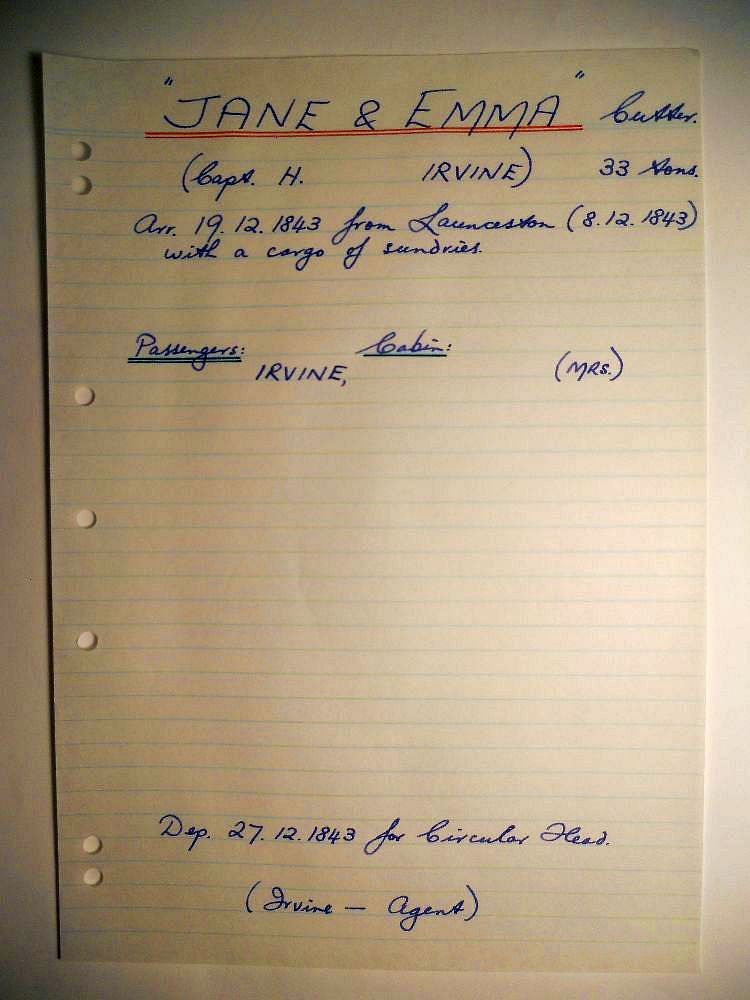 "JANE & EMMA" Cutter.
(Capt. H. IRVINE) 33 tons.
Arr. 19.12.1843 from Launceston (8.12.1843)
with a cargo of sundries.
Passengers: Cabin:
IRVINE, (MRS.)
Dep. 27.12.1843 for Circular Head.
(Irvine — Agent)